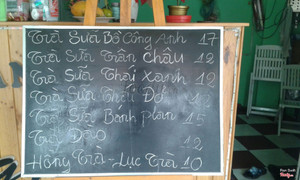 Trà Sữa Bồ Công Anh 17
Trà Sữa Trân Châu 12
Trà Sữa Thái Xanh 12
Trà Sữa Thái Đỏ
Trà Sữa Bánh Plan 15
Trà Đào 12
Hồng Trà - Lục Trà 10